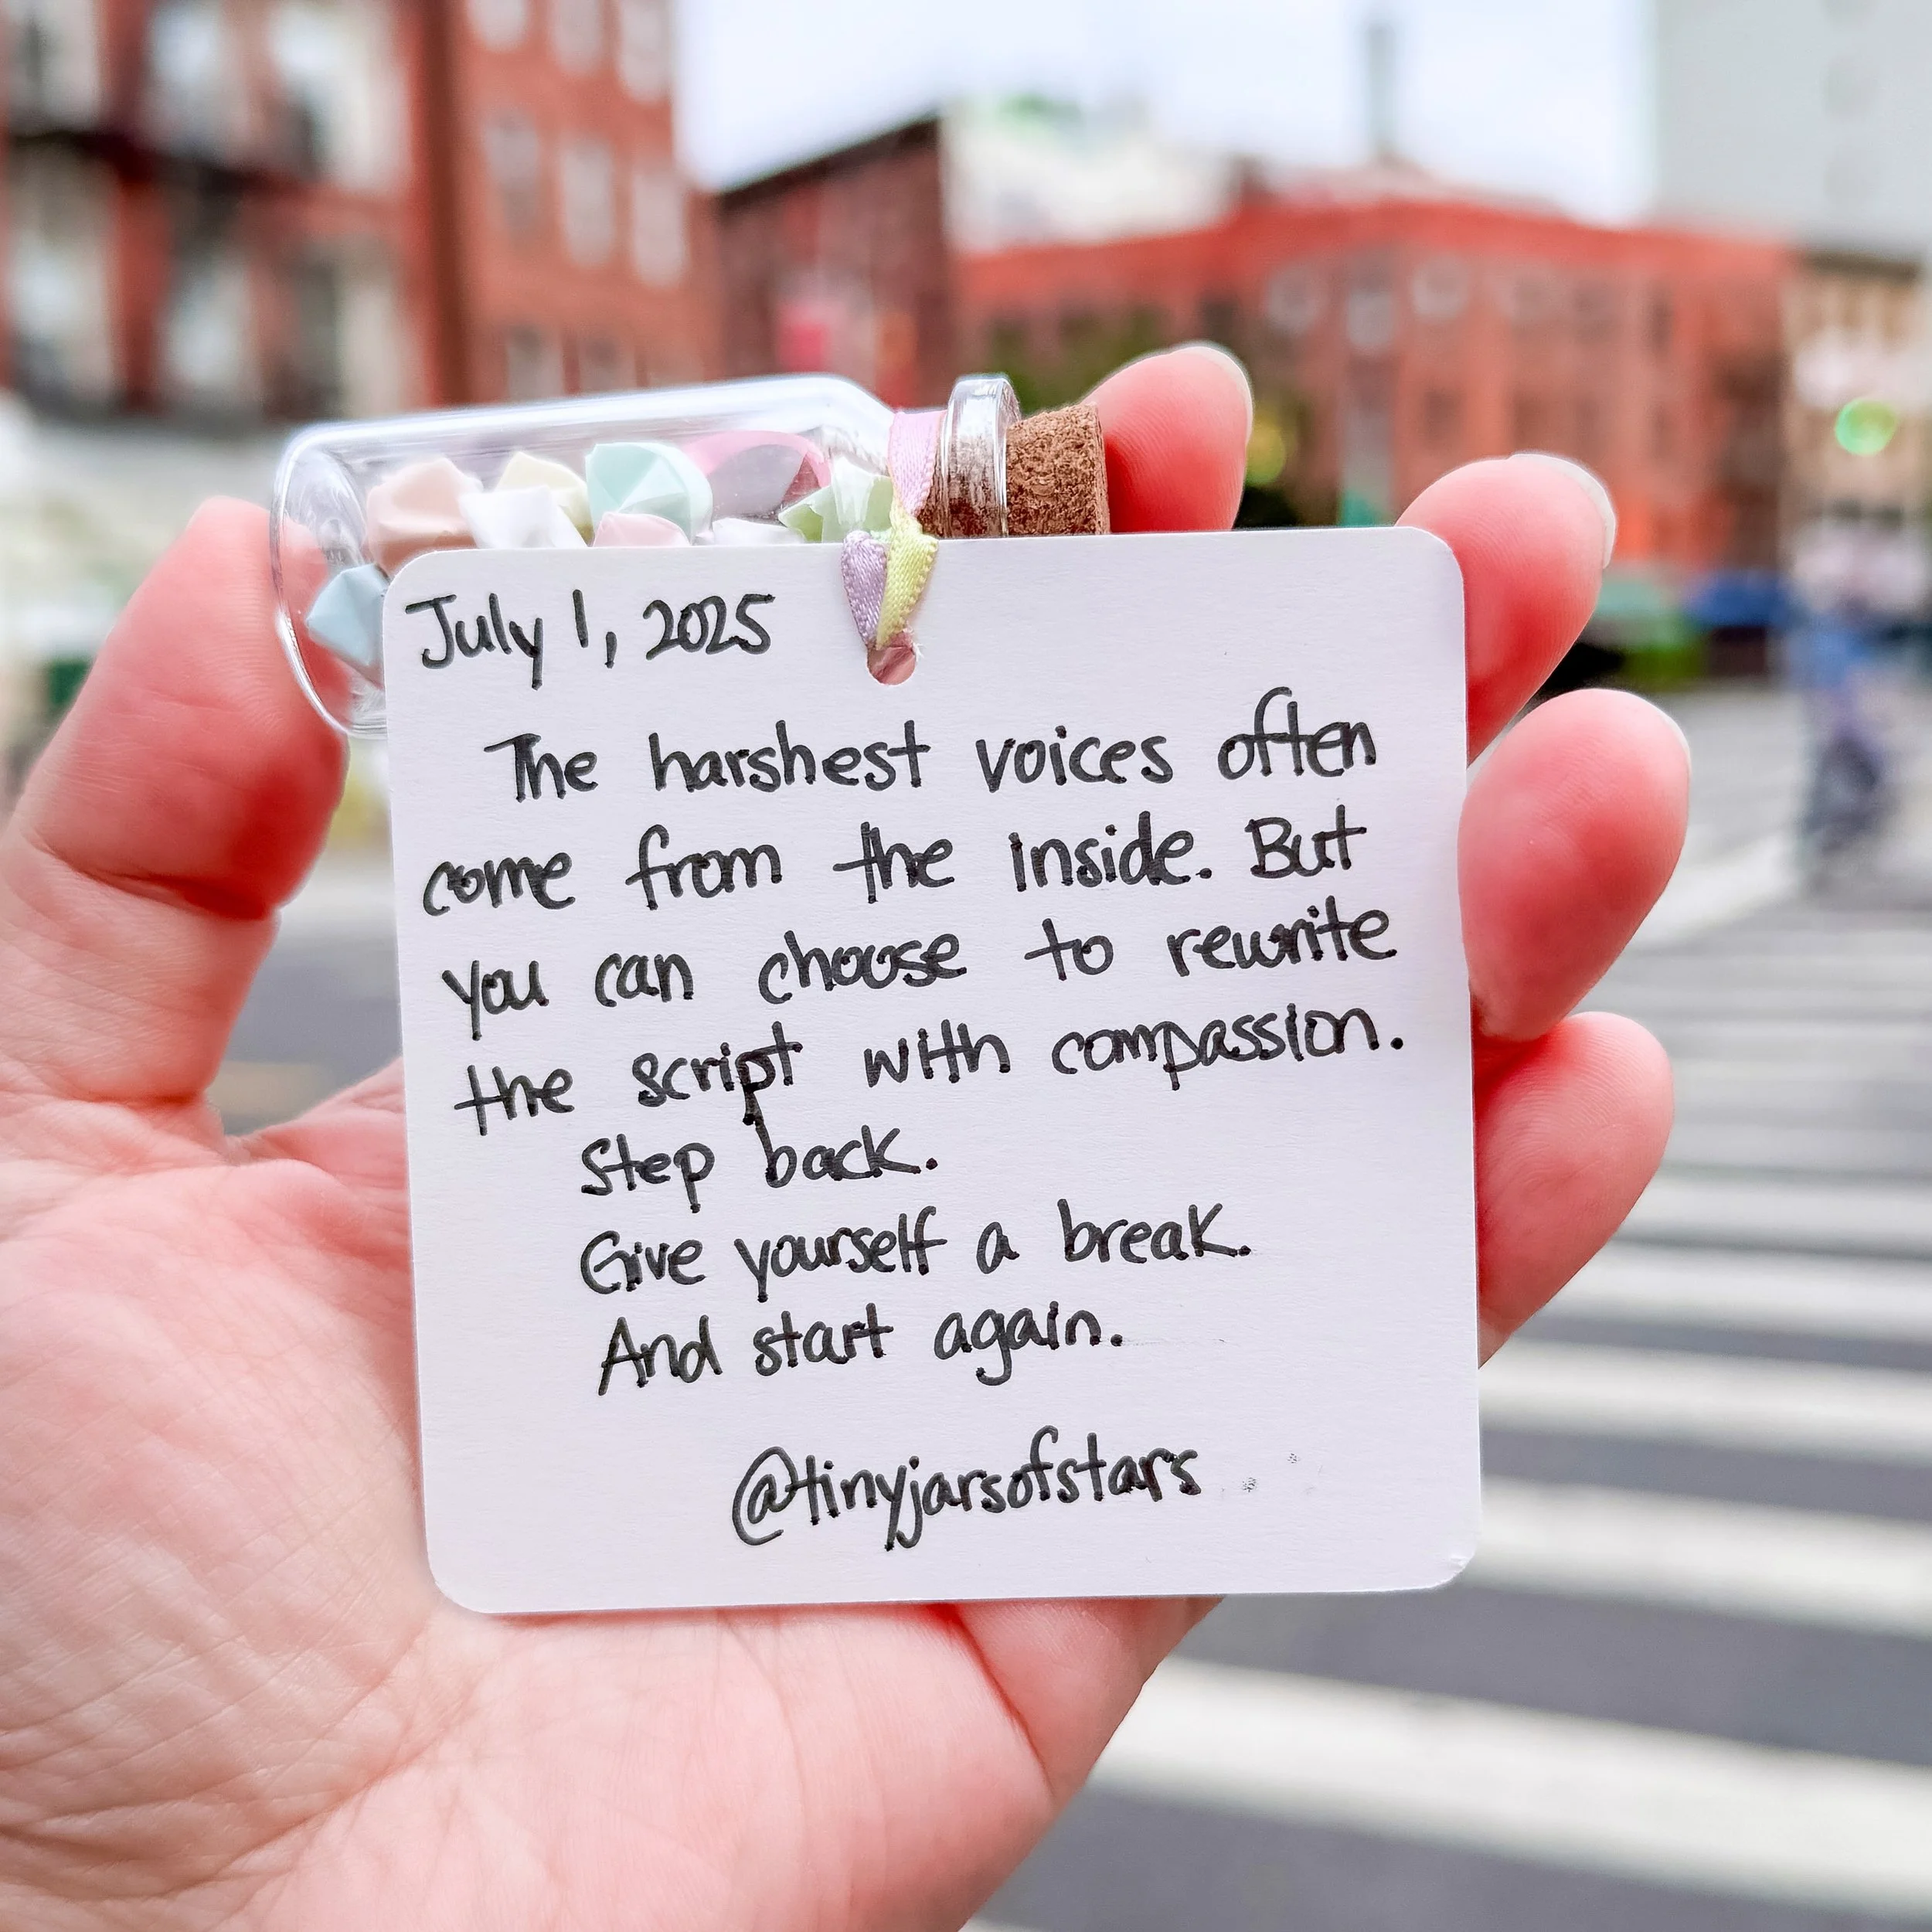 July 1, 2025
The harshest voices often
come from the inside. But
you can choose to rewrite
the script with compassion.
Step back.
Give yourself a break.
And start again.
@tinyjarsofstars